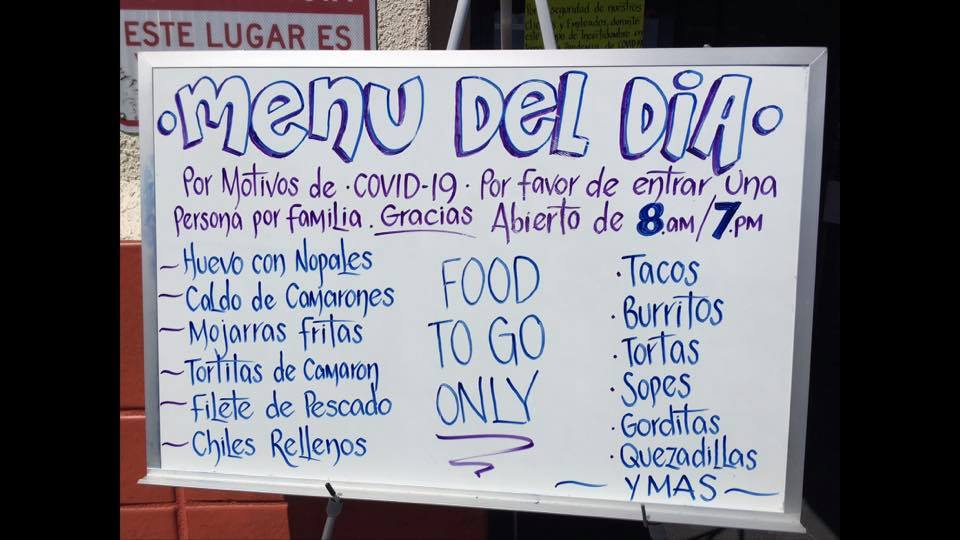 ESTE LUGAR ES
seguridad de nuestros
y Empleados, durante
de Incertidumbre en
MENU DEL DIA
Por Motivos de · COVID-19 · Por favor de entrar Una
Persona por familia. Gracias Abierto de 8.am/7.pm
~ Huevo con Nopales
~ Caldo de Camarones
~ Mojarras fritas
~ Tortitas de Camaron
~ Filete de Pescado
~ Chiles Rellenos
FOOD
TO GO
ONLY
· Tacos
· Burritos
· Tortas
· Sopes
· Gorditas
· Quezadillas
~ Y MAS ~